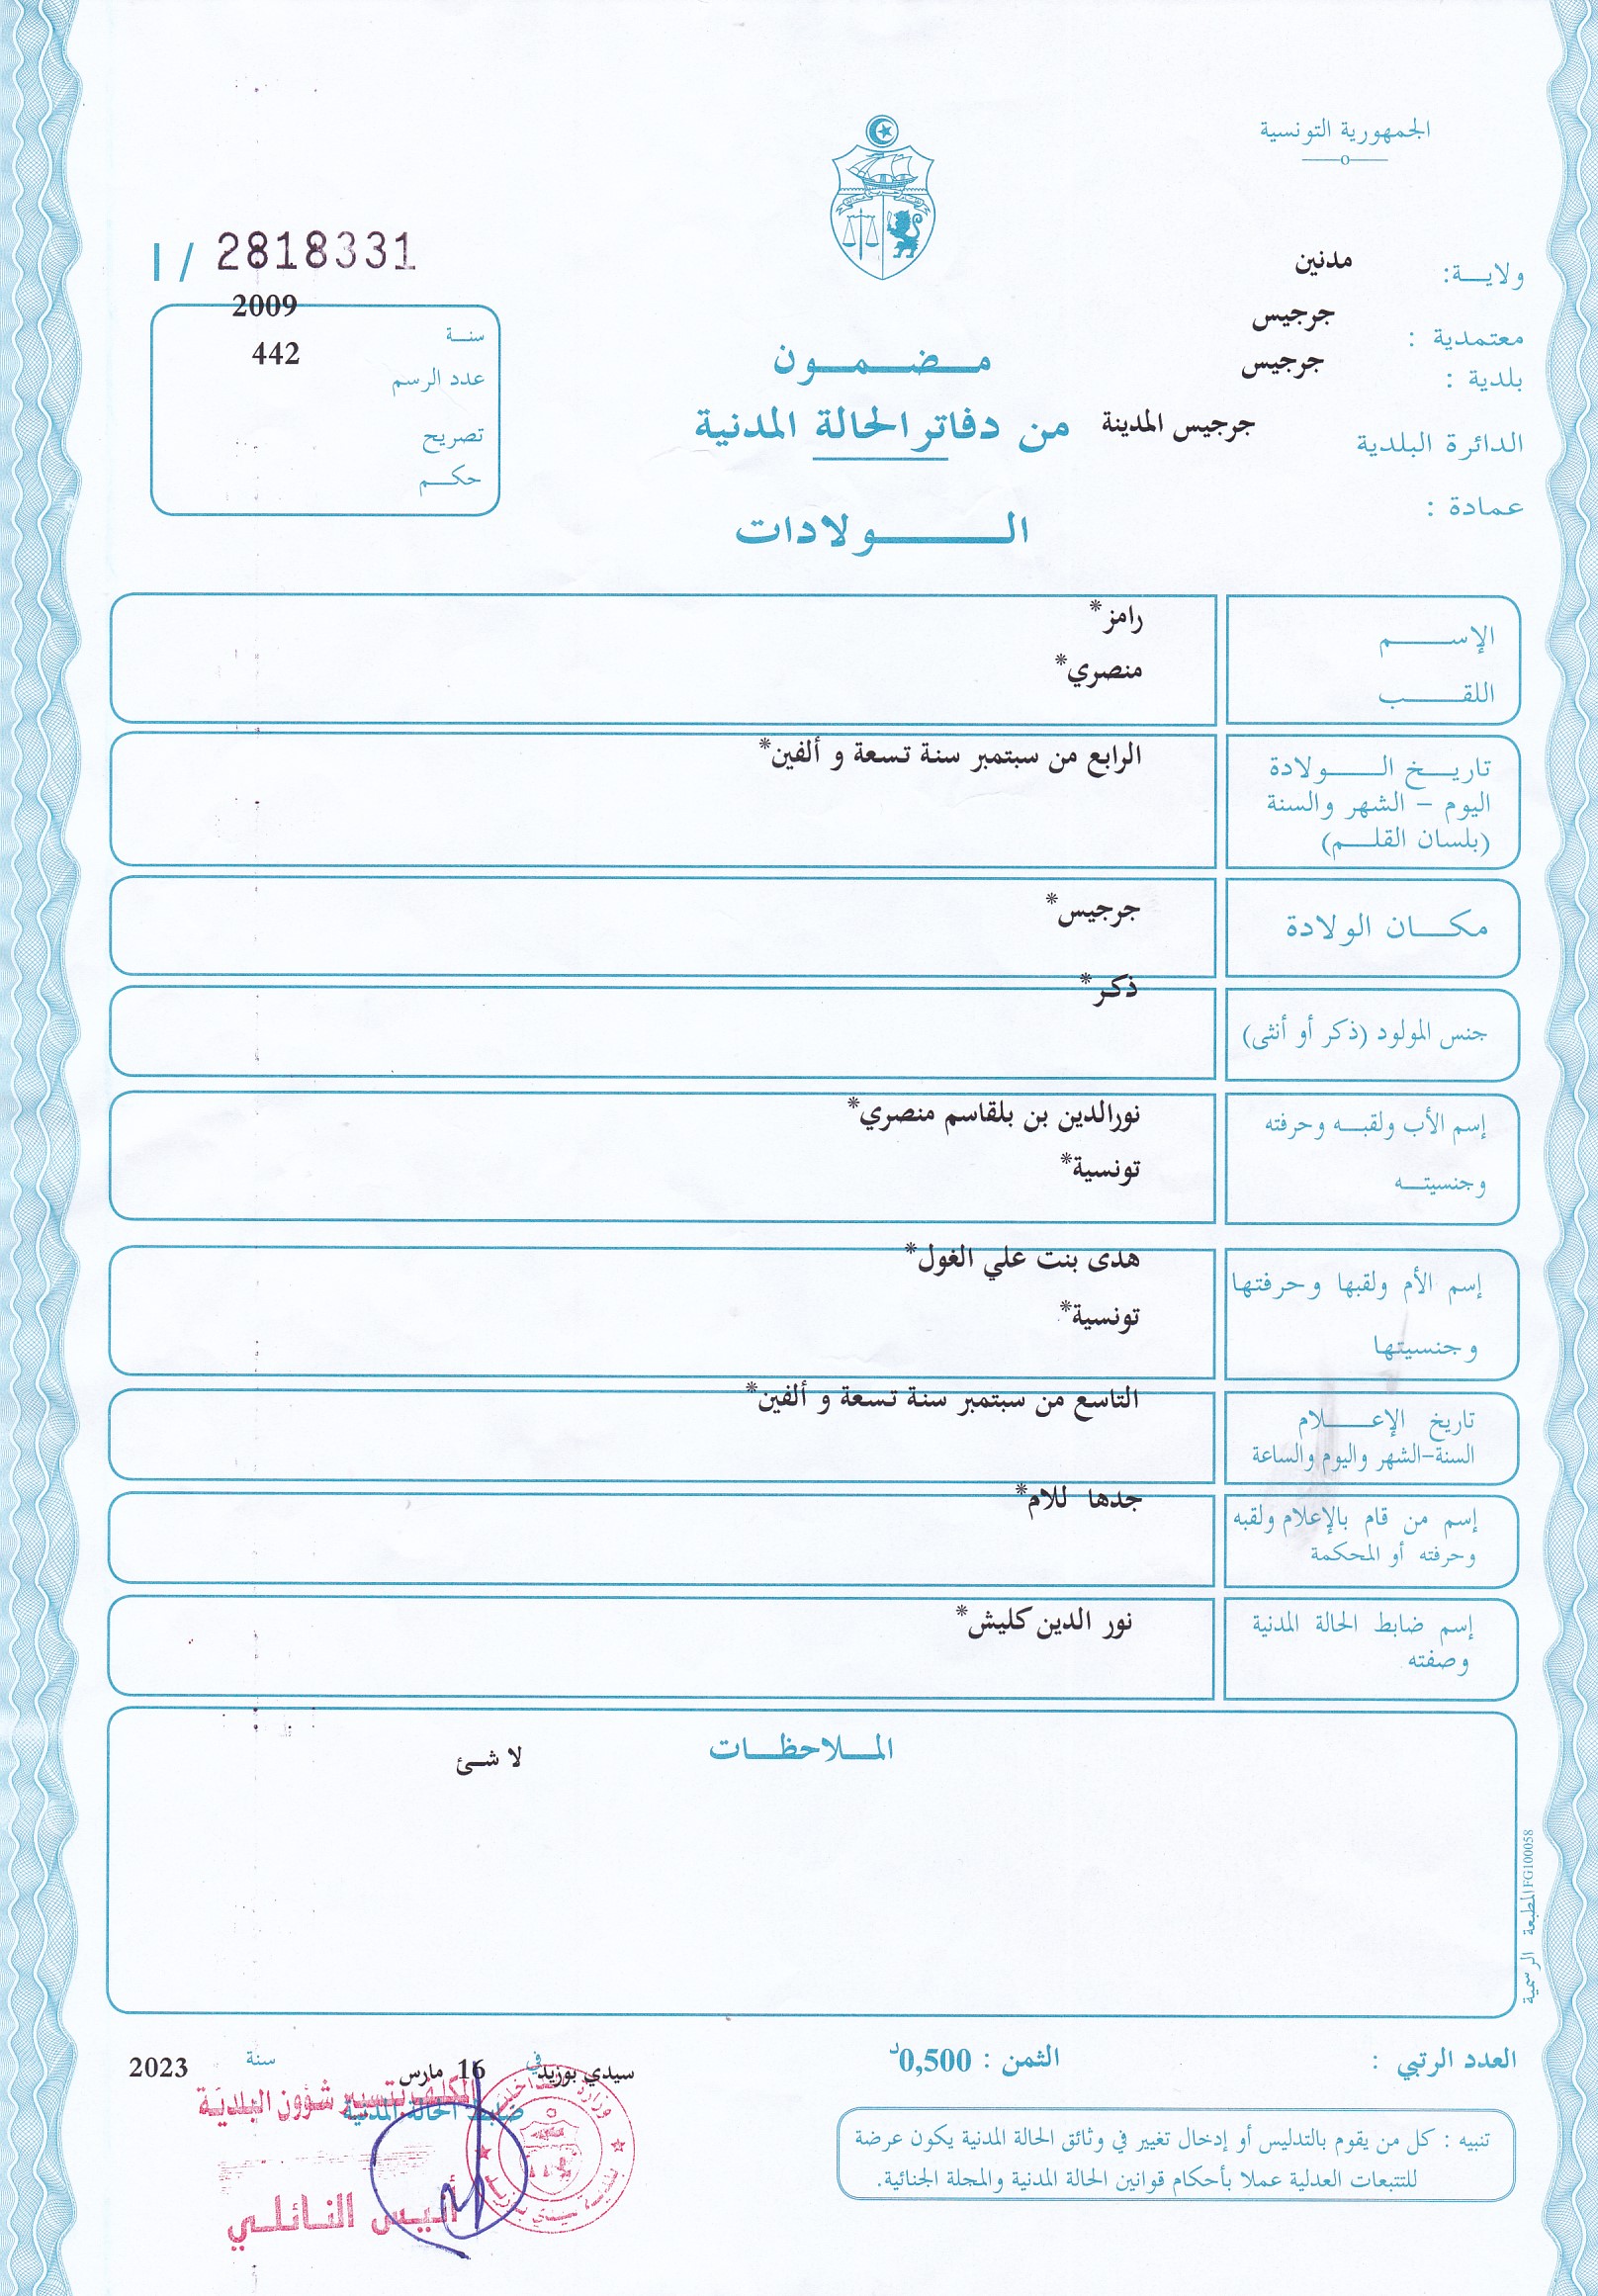 الجمهورية التونسية
ولايـــة: مدنين
معتمدية : جرجيس
بلدية : جرجيس
الدائرة البلدية جرجيس المدينة
عمادة :
I / 2818331
سنــة 2009
عدد الرسم 442
تصريح
حكــم
مـضـمـون
من دفاتر الحالة المدنية
الـــولادات
الإســــم رامز*
اللقــــب منصري*
تاريــخ الـــولادة الرابع من سبتمبر سنة تسعة و ألفين*
اليوم – الشهر والسنة
(بلسان القلــم)
مكــــان الولادة جرجيس*
جنس المولود (ذكر أو أنثى) ذكر*
إسم الأب ولقبــه وحرفته نورالدين بن بلقاسم منصري*
وجنسيتــه تونسية*
إسم الأم ولقبها وحرفتها هدى بنت علي الغول*
وجنسيتها تونسية*
تاريخ الإعــــلام التاسع من سبتمبر سنة تسعة و ألفين*
السنة–الشهر واليوم والساعة
إسم من قام بالإعلام ولقبه جدها للام*
وحرفته أو المحكمة
إسم ضابط الحالة المدنية نور الدين كليش*
وصفته
المــلاحظــات
لا شئ
المطبعة الرسمية FG100058
العدد الرتبي :
الثمن : 0,500د
سيدي بوزيد في 16 مارس سنة 2023
ضابط الحالة المدنية
المكلف بتسيير شؤون البلدية
أنيس النائلي
تنبيه : كل من يقوم بالتدليس أو إدخال تغيير في وثائق الحالة المدنية يكون عرضة
للتتبعات العدلية عملا بأحكام قوانين الحالة المدنية والمجلة الجنائية.